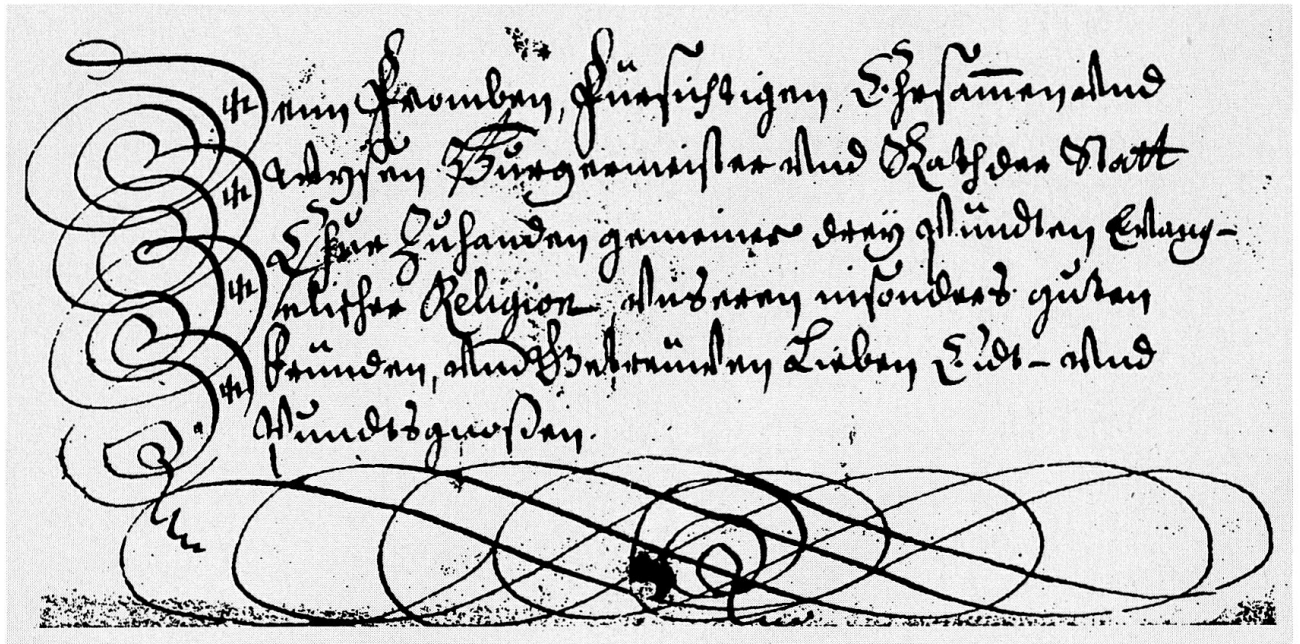 Denn Fromben, Fürsichtigen, Ehrsam̅en vnd
wysen Burgermeister vnd Rath der Statt
Chur Zuhanden gemeiner dreÿ Pündten Evang-
elischer Religion, vnseren insonders guten
fründen, vnd Getreüwen Lieben Eidt- vnd
Pundtsgnoßen.